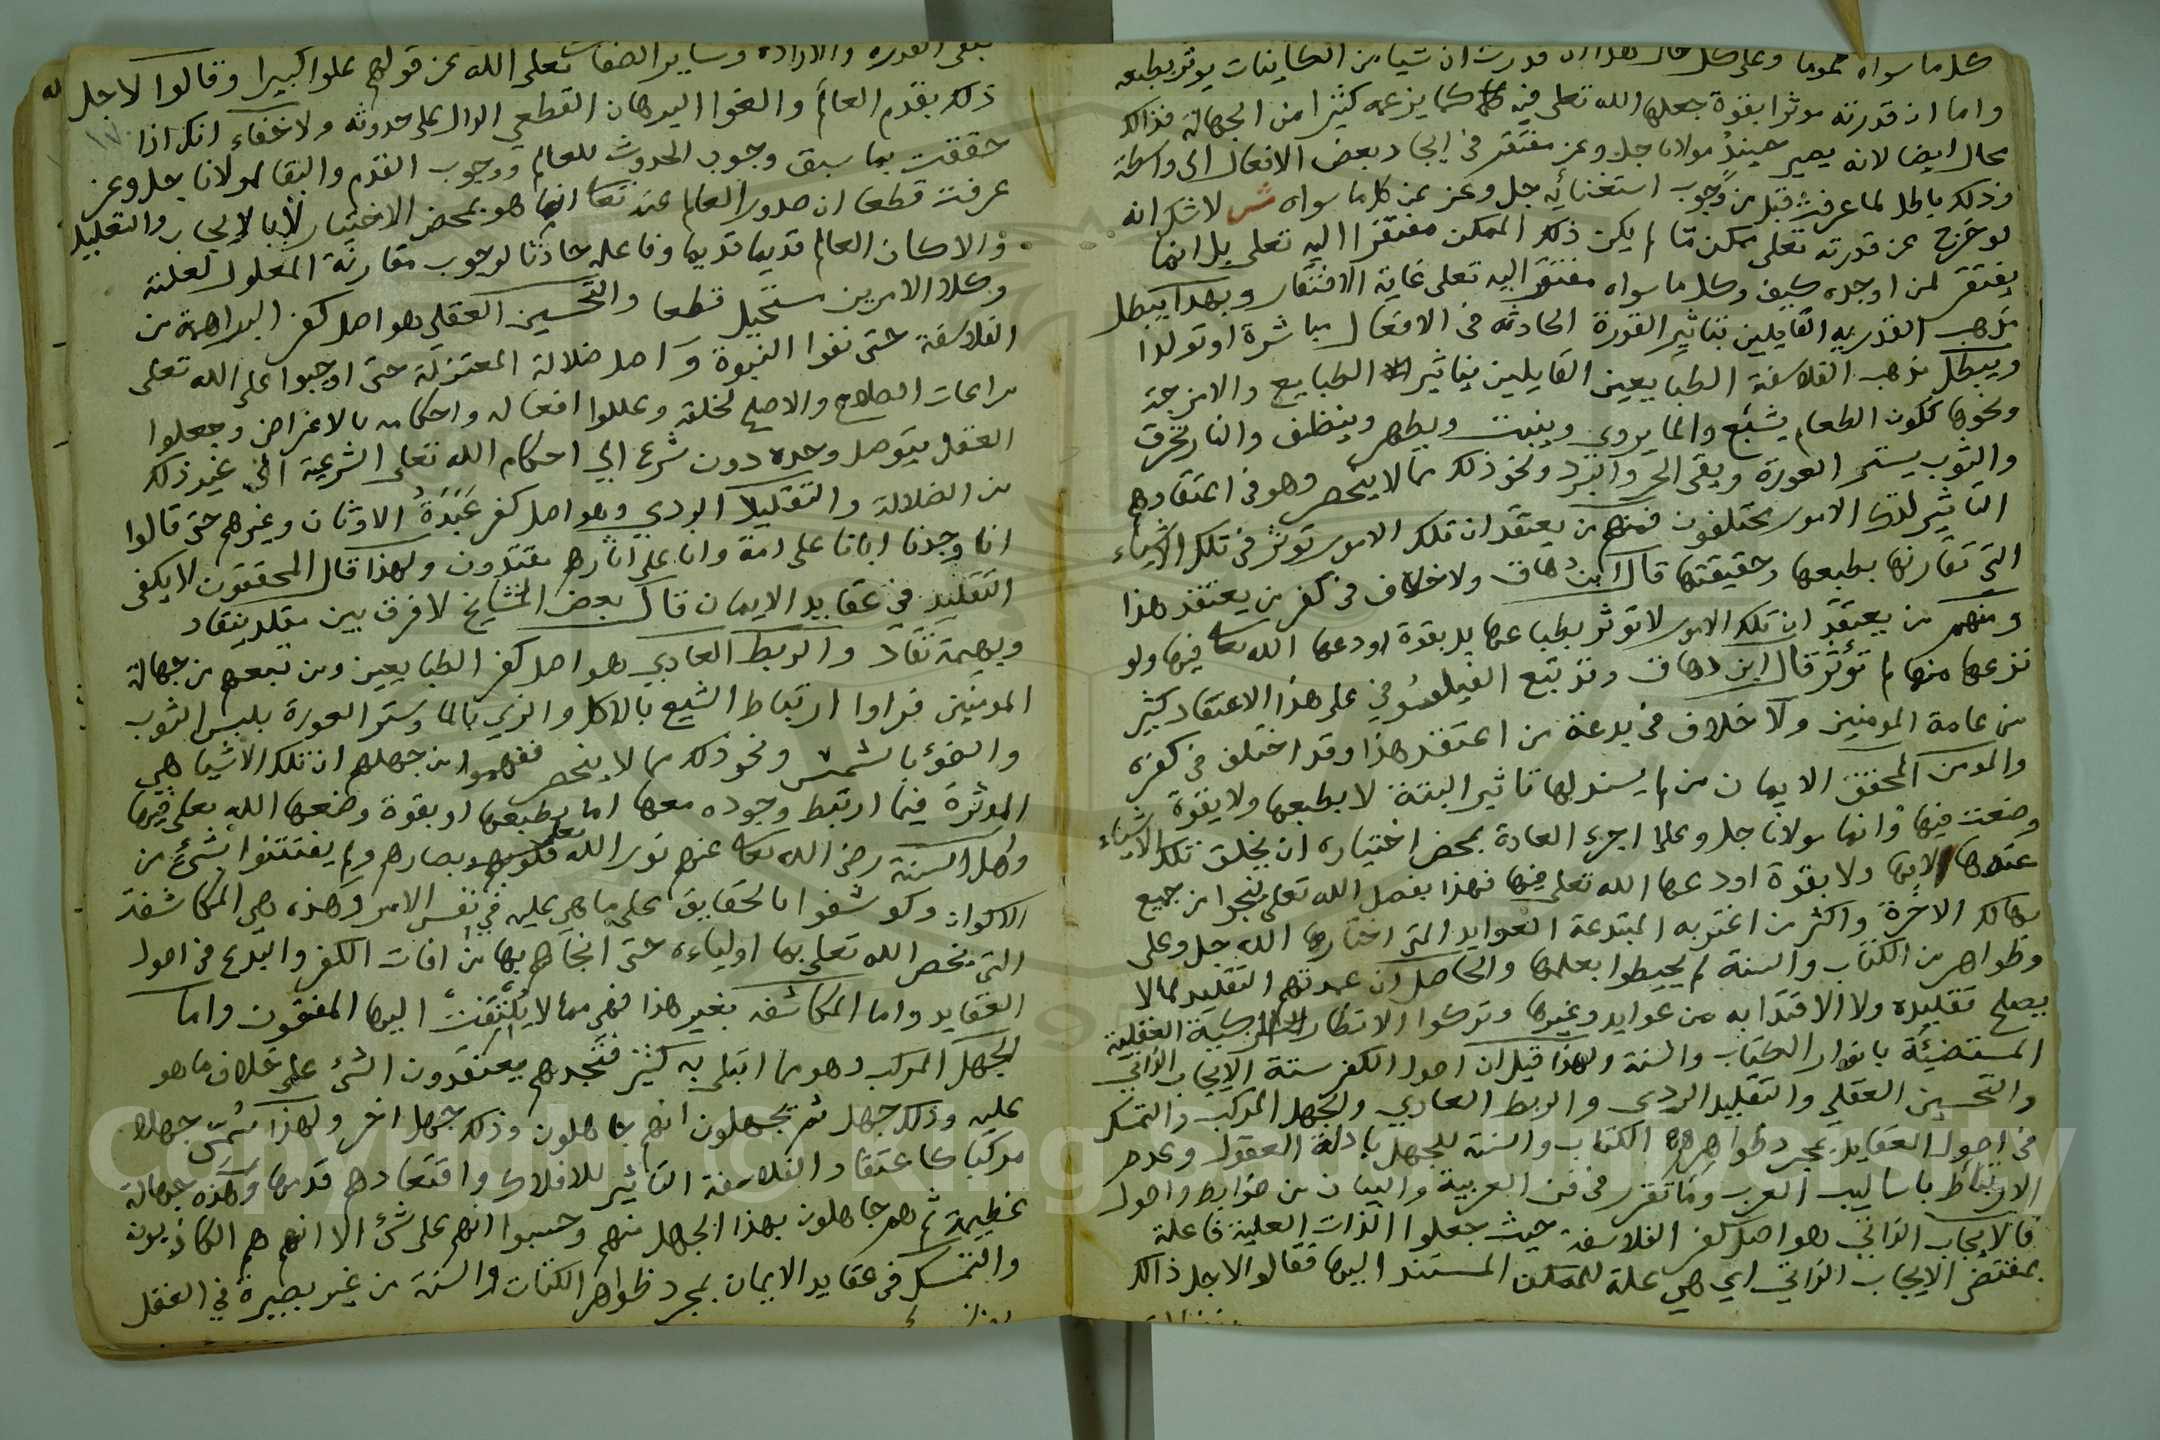 كل ما سواه عموما وعلى كل حال هذا ان قدرت ان شيا من الكاينات يوثر بطبعه
واما ان قدرته موثرا بقوة جعلها الله تعلى فيه كما يزعمه كثيرا من الجهالة فذالك
محال ايضا لانه يصير حينيذ مولانا جل وعز مفتقر في ايجاد بعض الافعال الى واسطة
وذلك باطل لما عرفت قبل من وجوب استغنائه جل وعز عن كل ما سواه ش لا شك انه
لو خرج عن قدرته تعلى ممكن ما لم يكن ذلك الممكن مفتقرا اليه تعلى بل انما
يفتقر لمن اوجده كيف وكل ما سواه مفتقر اليه تعلى غاية الافتقار وبهذا يبطل
مذهب القدريه القايلين بتاثير القدرة الحادثه في الافعال مباشرة او تولدا
ويبطل مذهب الفلاسفة الطبايعيين القايلين بتاثير الطبايع والامزجة
ونحوها ككون الطعام يشبع والما يروي وينبت ويطهر وينظف والنار تحرق
والثوب يستر العورة ويقي الحر والبرد ونحو ذلك مما لا ينحصر وهو في اعتقادهم
التاثير لتلك الامور مختلفون فمنهم من يعتقد ان تلك الامور توثر في تلك الاشياء
التي تقارنها بطبعها وحقيقتها قال ابن دهاق ولا خلاف في كفر من يعتقد هذا
ومنهم من يعتقد ان تلك الامور لا توثر بطباعها بل بقوة اودعها الله تعا فيها ولو
نزعها منها لم توثر قال ابن دهاق وقد تبع الفيلسوفي على هذا الاعتقاد كثير
من عامة المومنين ولا خلاف في بدعة من اعتقد هذا وقد اختلف في كفره
والمومن المحقق الايمان من لم يسند لها تاثير البتة لا بطبعها ولا بقوة
وضعت فيها وانما مولانا جل وعلا اجرى العادة بمحض اختياره ان يخلق تلك الاشياء
عندها لا بها ولا بقوة اودعها الله تعلى فيها فهذا بفضل الله تعلى ينجوا من جميع
مهالك الاخرة واكثر من اغتر به المبتدعة العوايد التي اختارها الله جل وعلى
وظواهر من الكتاب والسنة لم يحيطوا بعلمها والحاصل ان عمدتهم التقليد لما لا
يصلح تقليده ولا الاقتدا به من عوايد وغيرها وتركوا الانظار الزكية العقلية
المستضيئة بانوار الكتاب والسنة ولهذا قيل ان اصول الكفر ستة الايجاب الذاتي
والتحسين العقلي والتقليد الردي والربط العادي والجهل المركب والتمسك
في اصول العقايد بمجرد ظواهر الكتاب والسنة للجهل بادلة العقول وعدم
الارتباط باساليب العرب وما تقرر في فن العربية والبيان من ضوابط واصول
فالايجاب الذاتي هو اصل كفر الفلاسفة حيث جعلوا الذات العلية فاعلة
بمقتضى الايجاب الذاتي اي هي علة للممكن المستند اليها فقالوا لاجل ذالك
بنفي القدرة والارادة وساير الصفات تعلى الله عن قولهم علوا كبيرا وقالوا لاجل
ذلك بقدم العالم والغوا البرهان القطعي الدال على حدوثه ولا خفاء انك اذا
حققت بما سبق وجوب الحدوث للعالم ووجوب القدم والبقا لمولانا جل وعز
عرفت قطعا ان صدور العالم عنه تعا انما هو بمحض الاختيار لا بالايجاب والتعليل
والا كان العالم قديما قديما وفاعله حادثا لوجوب مقارنة المعلول لعلته
وكلا الامرين مستحيل قطعا والتحسين العقلي هو اصل كفر البراهمة من
الفلاسفة حتى نفوا النبوة واصل ضلالة المعتزلة حتى اوجبوا على الله تعلى
مراعات الصلاح والاصلح لخلقه وعللوا افعاله واحكامه بالاغراض وجعلوا
العقل يتوصل وحده دون شرع الي احكام الله تعلى الشرعية الى غير ذلك
من الضلالة والتقليد الردي وهو اصل كفر عبدة الاوثان وغيرهم حتى قالوا
انا وجدنا اباتا على امة وانا على اثارهم مقتدون ولهذا قال المحققون لا يكفى
التقليد في عقايد الايمان قال بعض المشايخ لا فرق بين مقلد ينقاد
وبهيمة تقاد والربط العادي هو اصل كفر الطبايعيين ومن تبعهم من جهالة
المومنين فراوا ارتباط الشبع بالاكل والري بالما وستر العورة بلبس الثوب
والضوء بالشمس ونحو ذلك مما لا ينحصر ففهموا من جهلهم ان تلك الاشيا هي
الموثرة فيما ارتبط وجوده معها اما بطبعها او بقوة وضعها الله تعلى فيها
واهل السنة رضى الله تعا عنهم نور الله تعلى بصارهم ولم يفتتنوا بشئ من
الاكوان وكوشفوا بالحقايق على ما هي عليه في نفس الامر وهذه هي المكاشفة
التي يخص الله تعلى بها اولياءه حتى انجاهم بها من افات الكفر والبدع في اصول
العقايد واما المكاشفه بغير هذا فهي مما لا يلتفت اليها المفقون واما
الجهل المركب وهو مما ابتلى به كثير فتجدهم يعتقدون الشئ على خلاف ما هو
عليه وذلك جهل ثم يجهلون انهم جاهلون وذلك جهل اخر ولهذا سمى جهلا
مركبا كاعتقاد الفلاسفة التاثير للافلاك واقتعادهم قدمها وهذه جهالة
عظيمة ثم هم جاهلون بهذا الجهل منهم وحسبوا انهم على شئ الا انهم هم الكاذبون
والتمسك في عقايد الايمان بمجرد ظواهر الكتاب والسنة من غير بصيرة في العقل
Copyright © King Saud University